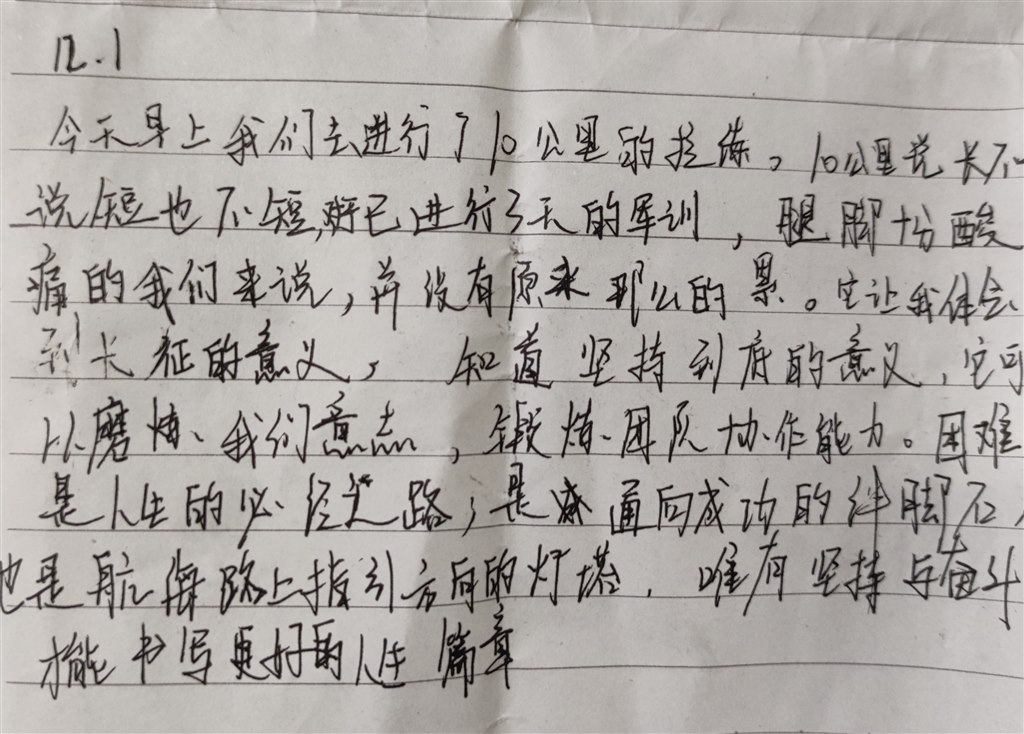 12.1
今天早上我们去进行了10公里的拉练。10公里说长不
说短也不短,对已进行3天的军训,腿脚十分酸
痛的我们来说,并没有原来那么的累。它让我体会
到长征的意义,知道坚持到底的意义,它可
以磨炼我们意志,锻炼团队协作能力。困难
是人生的必经之路,是通向成功的绊脚石
也是航海路上指引方向的灯塔,唯有坚持与奋斗
才能书写更好的人生篇章